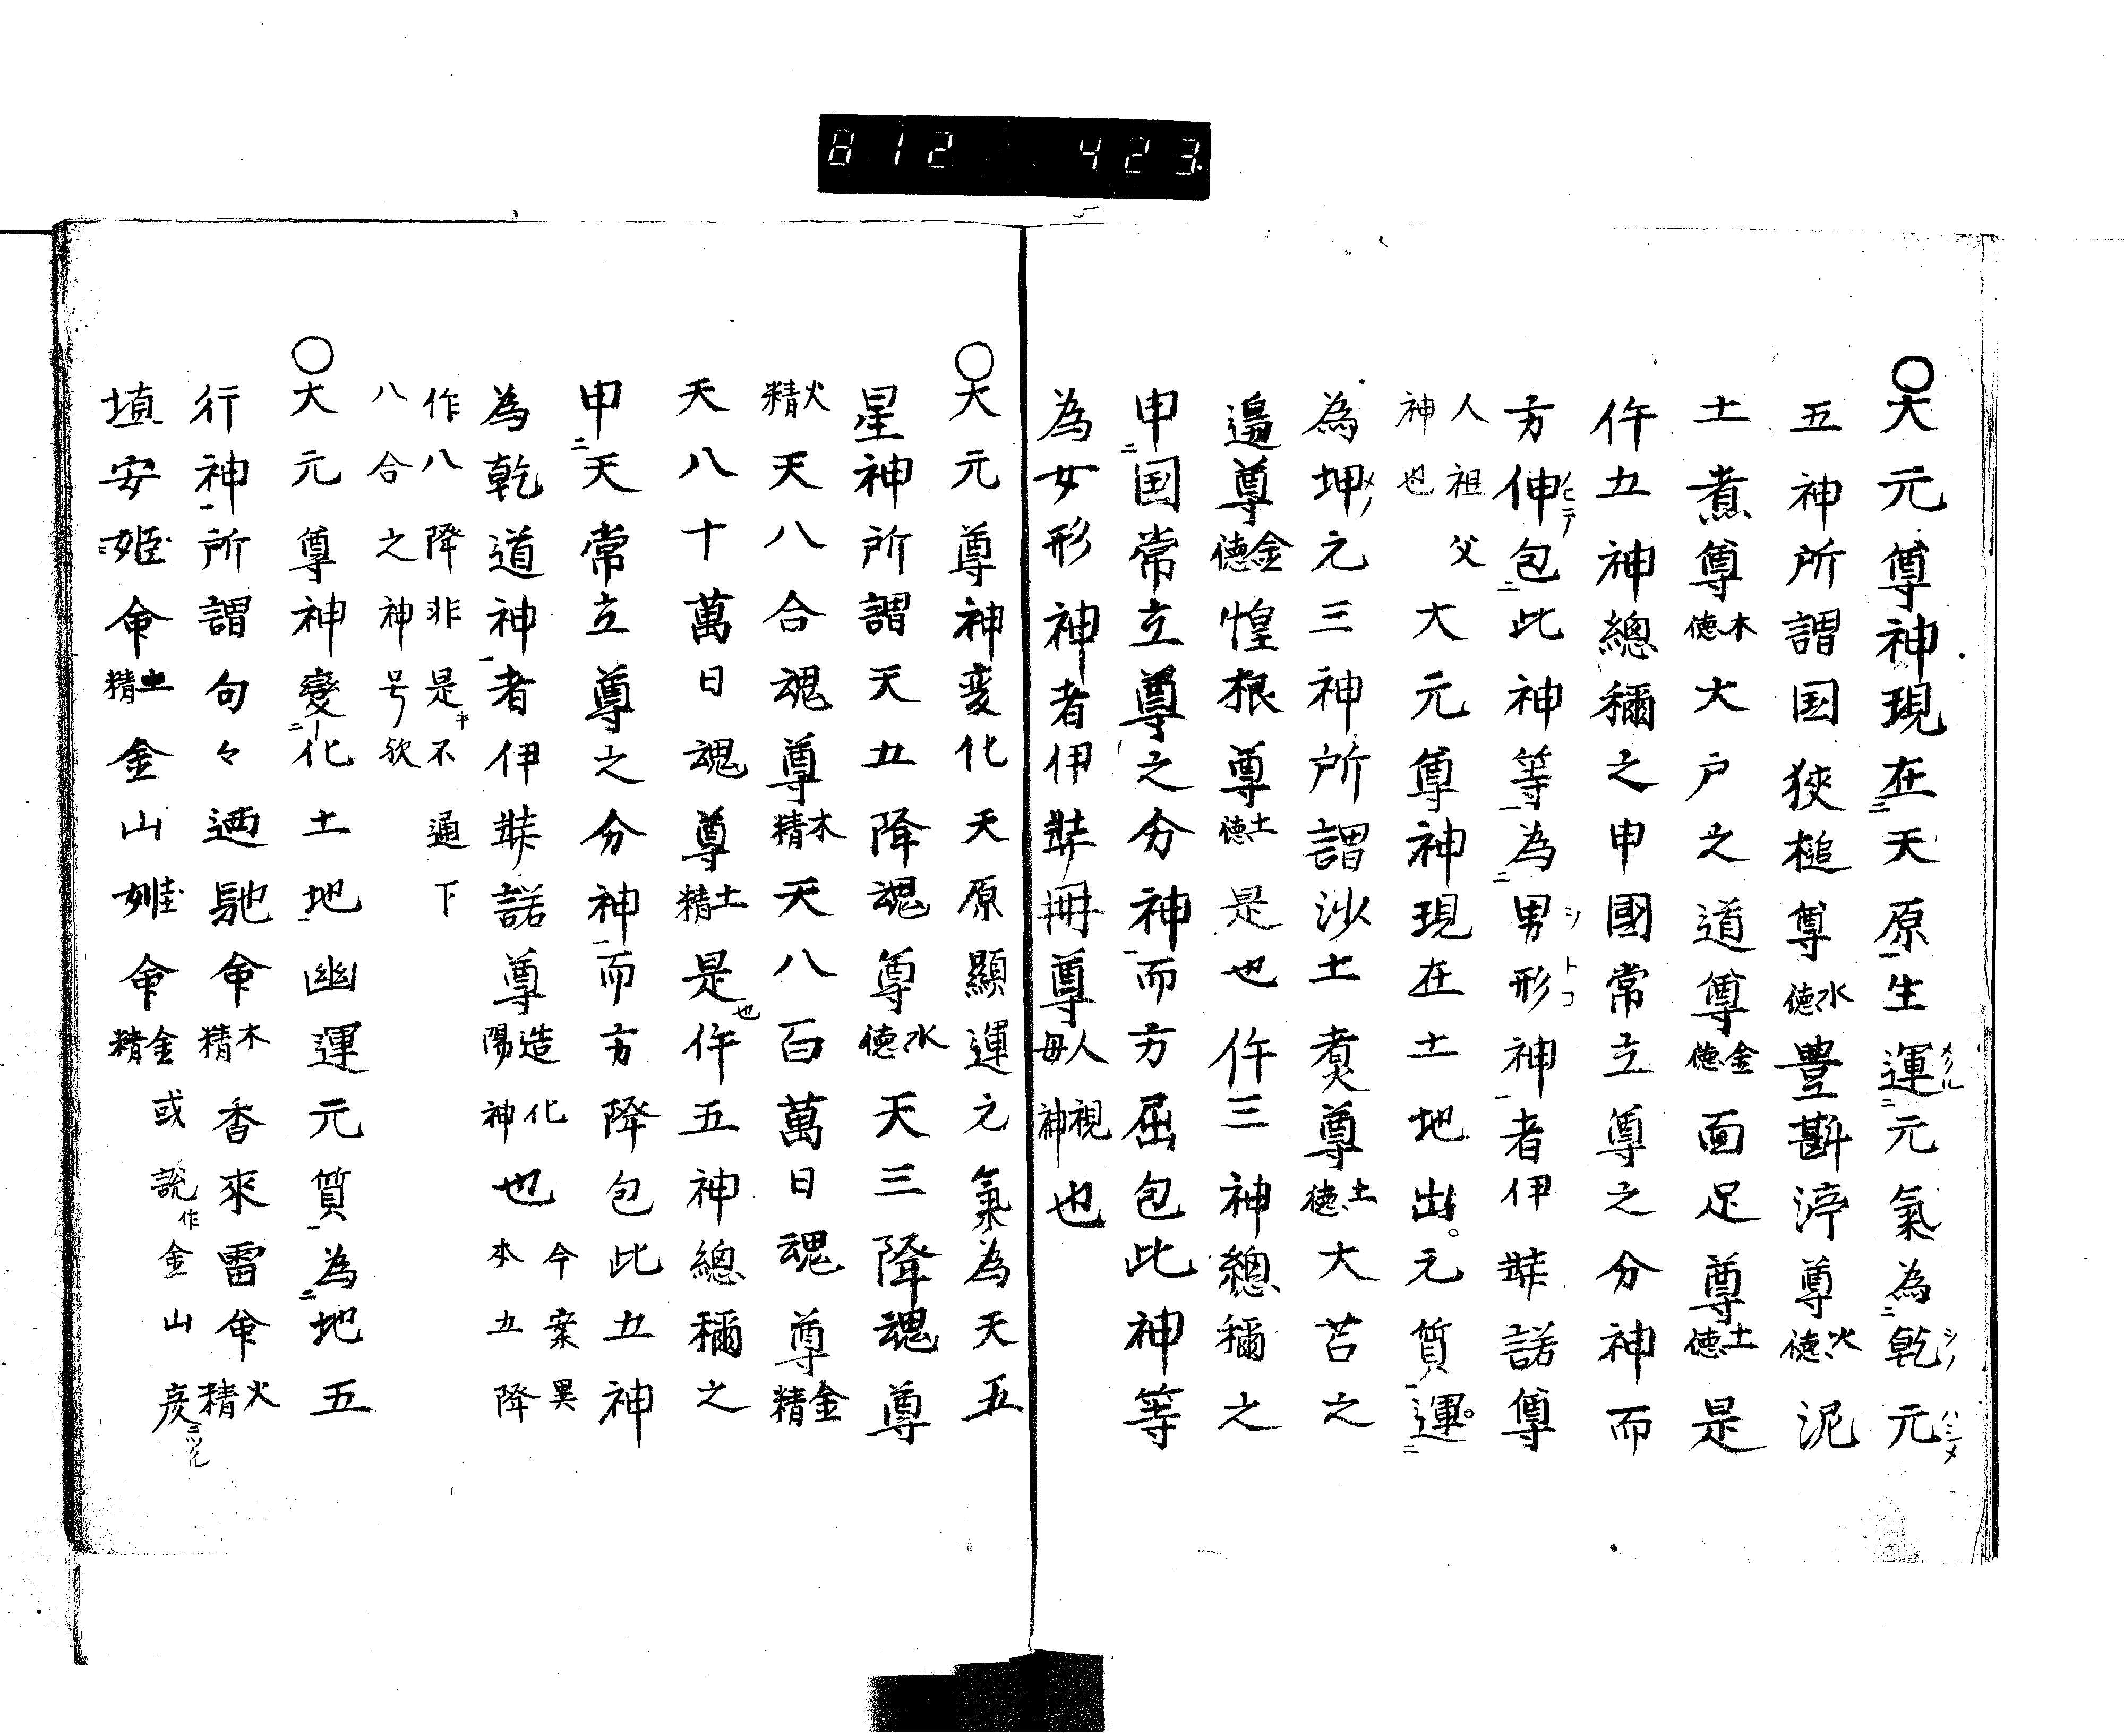 812 423
○大元尊神現在天原生運元氣為乾元
五神所謂国狹槌尊水德豊斟渟尊火德泥
土煮尊木德大户之道尊金德面足尊土德是
仵五神總稱之申國常立尊之分神而
方伸包此神等為男形神者伊弉諾尊
人祖父神也大元尊神現在土地出元質運
為坤元三神所謂沙土煑尊土德大苫之
邉尊金德惶根尊土德是也仵三神總稱之
申国常立尊之分神而方屈包此神等
為女形神者伊弉冊尊人母祖神也
○大元尊神変化天原顯運元氣為天五
星神所謂天五降魂尊水德天三降魂尊
火精天八合魂尊木精天八百萬日魂尊金精
天八十萬日魂尊土精是也仵五神總稱之
申天常立尊之分神而方降包此五神
為乾道神者伊弉諾尊造化陽神也今案異本五降
作八降非是乎不通下
八合之神号欤
○大元尊神變化土地幽運元質為地五
行神所謂句々廼馳命木精香來雷命火精
埴安姫命土精金山姫命金精或説作金山彦